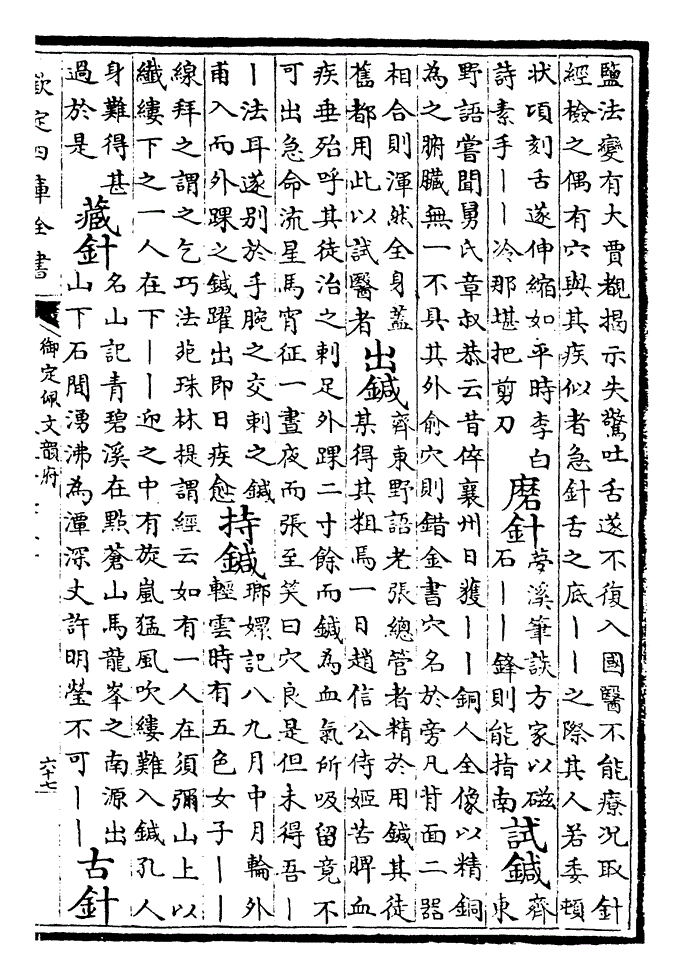 鹽法變有大賈覩揭示失驚吐舌遂不復入國醫不能療况取針
經檢之偶有穴與其疾似者急針舌之底丨丨之際其人若委頓
狀頃刻舌遂伸縮如平時李白
詩素手丨丨冷那堪把剪刀
磨針
夢溪筆談方家以磁
石丨丨鋒則能指南
試鍼
齊
東
野語嘗聞舅氏章叔恭云昔倅襄州日獲丨丨銅人全像以精銅
為之腑臟無一不具其外俞穴則錯金書穴名於旁凡背面二器
相合則渾然全身蓋
舊都用此以試醫者
出鍼
齊東野語老張總管者精於用鍼其徒
某得其粗焉一日趙信公侍姬苦脾血
疾垂殆呼其徒治之刺足外踝二寸餘而鍼為血氣所吸留竟不
可出急命流星馬宵征一晝夜而張至笑曰穴良是但未得吾丨
丨法耳遂别於手腕之交刺之鍼
甫入而外踝之鍼躍出即日疾愈
持鍼
瑯嬛記八九月中月輪外
輕雲時有五色女子丨丨
線拜之謂之乞巧法苑珠林提謂經云如有一人在須彌山上以
纖縷下之一人在下丨丨迎之中有旋嵐猛風吹縷難入鍼孔人
身難得甚
過於是
藏針
名山記青碧溪在點蒼山馬龍峯之南源出
山下石間湧沸為潭深丈許明瑩不可丨丨
古針
欽定四庫全書
御定佩文韻府
六十七